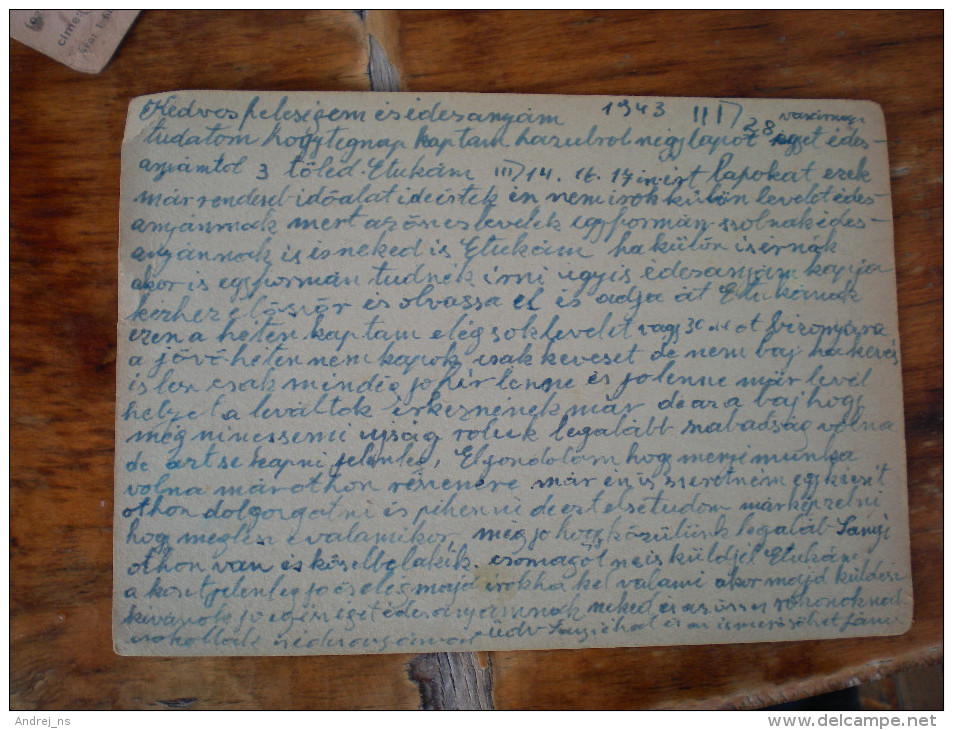 cime:
Kedves feleségem és édesanyám 1943 III 28 vasárnap
tudatom hogy tegnap kaptam hazulrol négy lapot egyet édes-
anyámtol 3 töled Etukám III 14. 16. 17 in irt lapokat ezek
már rendesd idöalat ideértek én nem irok külön levelet édes-
anyánnak mert azönes levelek egyformán szolnak édes-
anyánnak is és neked is Etukám ha külön is irnák
akor is egyformán tudnék írni ugyis édesanyám kapja
kézhez elösször és olvassa el és adja át Etukának
ezen a héten kaptam elég sok levelet vagy 30 at bizonyára
a jövö héten nem kapok csak keveset de nem baj ha kevés
is lesz csak mindég jo hír lenne és jo lenne már levél
helyet a leváltok érkeznének már de az a baj hogy
még nincs semi ujság roluk legalább szabadság volna
de azt se kapni jelenleg, Elgondolam hogy menyi munka
volna már othon részemre már én is szeretném egy kicsit
othon dolgozgatni és pihenni de ezt el se tudom már képzelni
hogy meglesz e valamikor, még jo hogy közülünk legaláb Sanyi
othon van és közelbe lakik. csomagot ne is küldjél Etukám
a koszt jelenleg jo és elég majd irok ha kel valami akor majd küldesz
kivánok jo egészséget édesanyámnak neked és az összes rokonoknak
csokollak édesanyámat üdv Sanyiékat és az ismerösöket Jani
Andrej_ns
www.delcampe.net